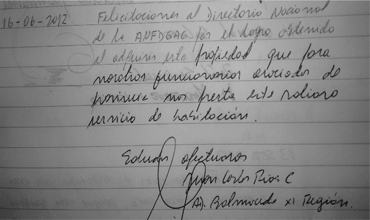 16-06-2012 Felicitaciones al Directorio Nacional
de la ANFDGAC por el logro obtenido
al adquirir esta propiedad que para
nosotros funcionarios asociados de
provincia nos presta este valioso
servicio de habitación.
afectuosos
Juan Carlos Rivas C
Ad. Balmaceda XI Región.